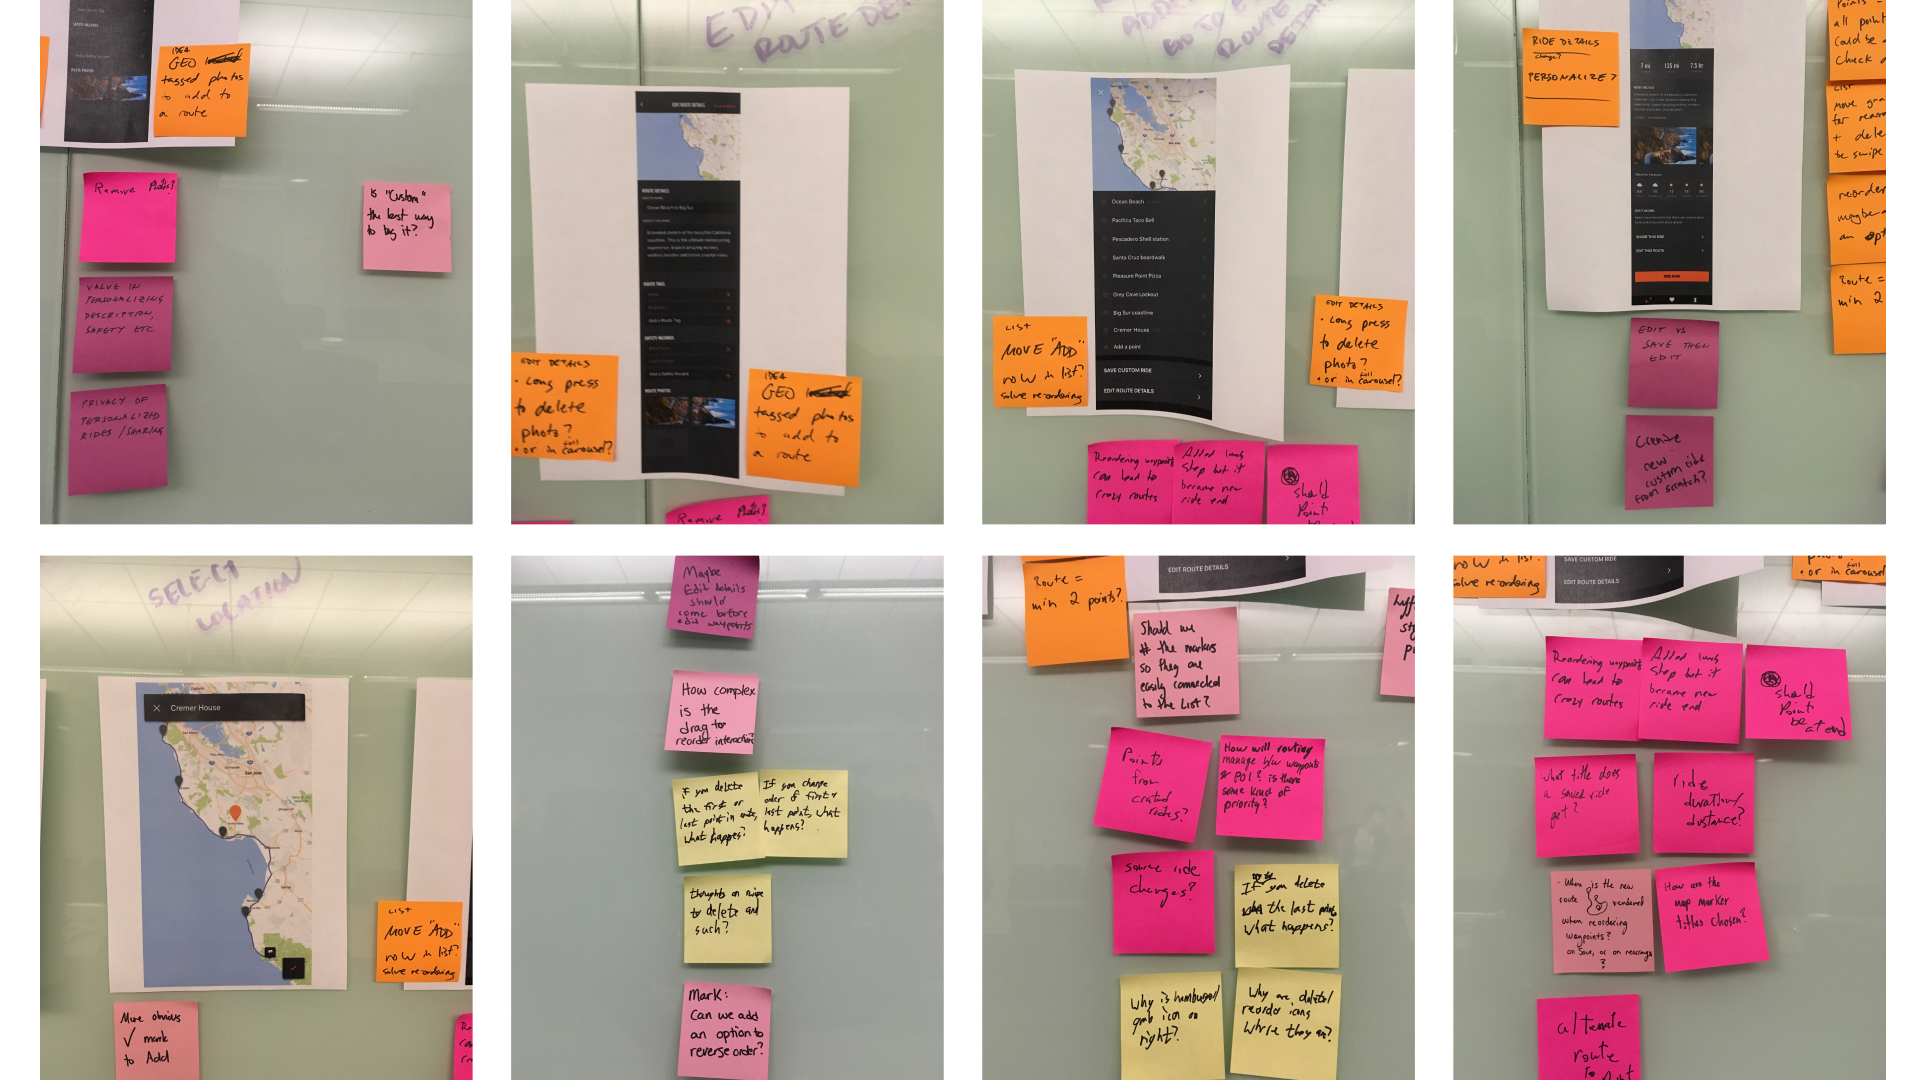 IDEA
GEO
tagged photos
to add to
a route
Remove Photos?
Is "Custom"
the best way
to tag it?
VALUE IN
PERSONALIZING
DESCRIPTION,
SAFETY ETC
PRIVACY OF
PERSONALIZED
RIDES / SHARING
EDIT
ROUTE DE
EDIT ROUTE DETAILS
ROUTE DETAILS
Ocean Beach to Big Sur
ROUTE TAGS
Add a Route Tag
SAFETY HAZARDS
Add a Safety Hazard
ROUTE PHOTOS
EDIT DETAILS
• Long press
to delete
photo?
• or in full carousel?
IDEA
GEO
tagged photos
to add to
a route
Remove Photos?
ROUTE
DETAILS
Ocean Beach
Pacifica Taco Bell
Pescadero Shell station
Santa Cruz boardwalk
Pleasure Point Pizza
Grey Cove Lockout
Big Sur coastline
Cremer House
+ Add a point
SAVE CUSTOM RIDE
EDIT ROUTE DETAILS
LIST
MOVE "ADD"
row in list?
solve re-ordering
EDIT DETAILS
• Long press
to delete
photo?
• or in full carousel?
Reordering waypoints
can lead to
crazy routes
Added lunch
stop but it
became new
ride end
should
point
RIDE DETAILS
change?
PERSONALIZE?
7 mi 135 mi 7.5 hr
SHARE THIS RIDE
EDIT THIS ROUTE
RIDE NOW
Points =
all point
could be
check
LIST
move gra
for rearr
+ dele
be swipe
reorder
maybe
an opt
Route =
min 2
EDIT VS
SAVE THEN
EDIT
Create
new
custom ride
from scratch?
SELECT
LOCATION
Cremer House
San Jose
LIST
MOVE "ADD"
row in list?
solve re-ordering
More obvious
✓ mark
to Add
Maybe
Edit details
should
come before
edit waypoints
How complex
is the
drag to
reorder interaction?
if you delete
the first or
last point in route,
what happens?
If you change
order of first +
last point, what
happens?
thoughts on swipe
to delete and
such?
Mark:
Can we add
an option to
reverse order?
EDIT ROUTE DETAILS
Route =
min 2 points?
Should we
# the markers
so they are
easily connected
to the list?
Points
from
crated
routes?
How will routing
manage b/w waypoints
& POI? is there
some kind of
priority?
source ride
changes?
If you delete
the last point
what happens?
Why is hamburger/
grab icon on
right?
Why are delete/
reorder icons
where they are?
row in list?
solve re-ordering
SAVE CUSTOM RIDE
EDIT ROUTE DETAILS
• or in full carousel
Reordering waypoints
can lead to
crazy routes
Added lunch
stop but it
became new
ride end
should
point
be
at end
what title does
a saved ride
get?
ride
duration/
distance?
- When is the new
route rendered
when reordering
waypoints?
on Save, or on rearrange
?
How are the
map marker
titles chosen?
alternate
route
to